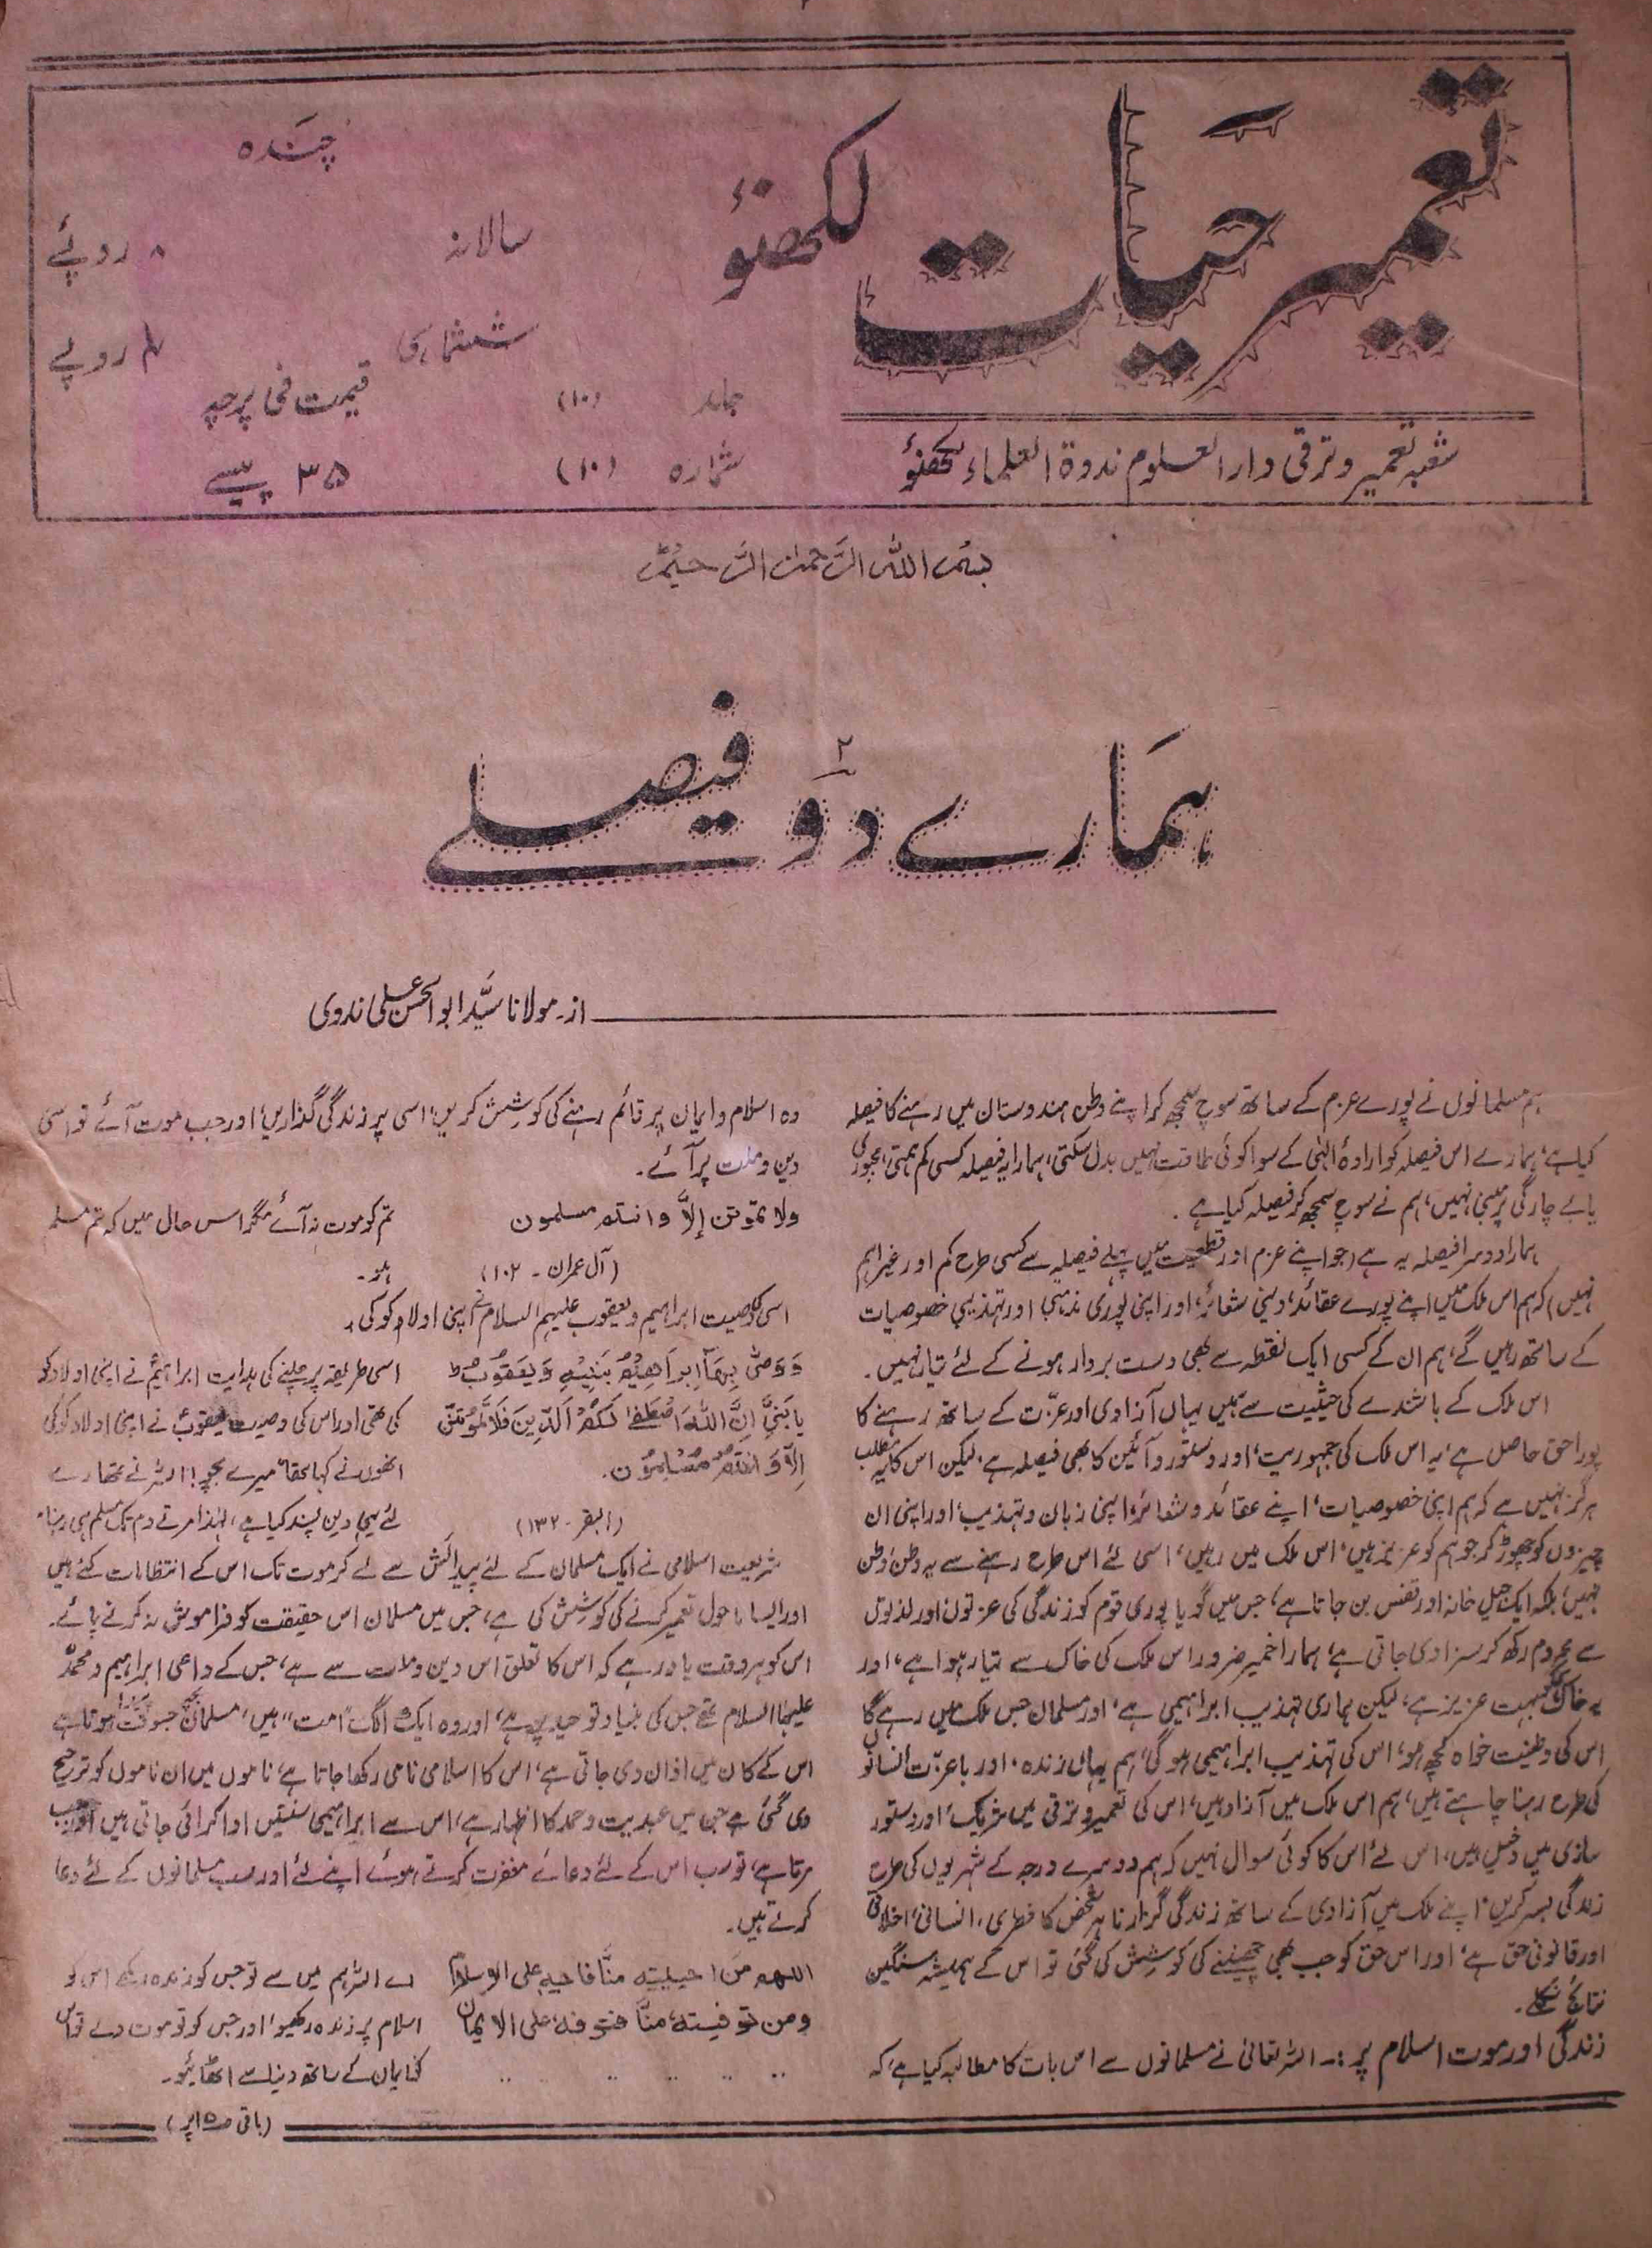 تعمیر حیات لکھنؤ
شعبہ تعمیر و ترقی دار العلوم ندوۃ العلماء لکھنؤ
چندہ
سالانہ ۸ روپئے
ششماہی ۴ روپے
جلد (۱۰) قیمت فی پرچہ
شمارہ (۱۰) ۳۵ پیسے
بسم اللہ الرحمٰن الرحیم
ہمارے دو ۲ فیصلے
از۔ مولانا سید ابو الحسن علی ندوی
ہم مسلمانوں نے پورے عزم کے ساتھ سوچ سمجھ کر اپنے وطن ہندوستان میں رہنے کا فیصلہ
کیا ہے، ہمارے اس فیصلہ کو ارادۂ الٰہی کے سوا کوئی طاقت نہیں بدل سکتی، ہمارا یہ فیصلہ کسی کم ہمتی، مجبوری
یا بے چارگی پر مبنی نہیں، ہم نے سوچ سمجھ کر فیصلہ کیا ہے۔
ہمارا دوسرا فیصلہ یہ ہے (جو اپنے عزم اور قطعیت میں پہلے فیصلہ سے کسی طرح کم اور غیر اہم
نہیں) کہ ہم اس ملک میں اپنے پورے عقائد، دینی شعائر، اور اپنی پوری مذہبی اور تہذیبی خصوصیات
کے ساتھ رہیں گے، ہم ان کے کسی ایک نقطہ سے بھی دست بردار ہونے کے لئے تیار نہیں۔
اس ملک کے باشندے کی حیثیت سے ہمیں یہاں آزادی اور عزّت کے ساتھ رہنے کا
پورا حق حاصل ہے، یہ اس ملک کی جمہوریت، اور دستور و آئین کا بھی فیصلہ ہے، لیکن اس کا یہ مطلب
ہرگز نہیں ہے کہ ہم اپنی خصوصیات، اپنے عقائد و شعائر، اپنی زبان و تہذیب، اور اپنی ان
چیزوں کو چھوڑ کر جو ہم کو عزیز ہیں، اس ملک میں رہیں، اسی لئے اس طرح رہنے سے یہ وطن، وطن
نہیں، بلکہ ایک جیل خانہ اور قفس بن جاتا ہے، جس میں گویا پوری قوم کو زندگی کی عزتوں اور لذتوں
سے محروم رکھ کر سزا دی جاتی ہے، ہمارا خمیر ضرور اس ملک کی خاک سے تیار ہوا ہے، اور
یہ خاک ہمکو بہت عزیز ہے، لیکن ہماری تہذیب ابراہیمی ہے، اور مسلمان جس ملک میں رہے گا
اس کی وطنیت خواہ کچھ ہو، اس کی تہذیب ابراہیمی ہو گی، ہم یہاں زندہ، اور باعزت انسانوں
کی طرح رہنا چاہتے ہیں، ہم اس ملک میں آزاد ہیں، اس کی تعمیر و ترقی میں شریک، اور دستور
سازی میں دخیل ہیں، اس لئے اس کا کوئی سوال نہیں کہ ہم دوسرے درجہ کے شہریوں کی طرح
زندگی بسر کریں، اپنے ملک میں آزادی کے ساتھ زندگی گزارنا ہر شخص کا فطری، انسانی، اخلاقی
اور قانونی حق ہے، اور اس حق کو جب بھی چھیننے کی کوشش کی گئی تو اس کے ہمیشہ سنگین
نتائج نکلے۔
زندگی اور موت اسلام پر :۔ اللہ تعالیٰ نے مسلمانوں سے اس بات کا مطالبہ کیا ہے، کہ
وہ اسلام و ایمان پر قائم رہنے کی کوشش کریں، اسی پر زندگی گذاریں، اور جب موت آئے تو اسی
دین و ملت پر آئے۔
ولا تموتن إلاَّ وانتم مسلمون تم کو موت نہ آئے مگر اس حال میں کہ تم مسلم
(آل عمران ۔ ۱۰۲) ہو۔
اسی کی وصیت ابراہیم و یعقوب علیہم السلام نے اپنی اولاد کو کی۔
وَوَصّٰى بِهَآ اِبراهيمُ بَنِيْهِ وَيَعْقُوْبُ ط اسی طریقہ پر چلنے کی ہدایت ابراہیمؑ نے اپنی اولاد کو
يٰبَنِيَّ اِنَّ اللّٰهَ اصْطَفٰى لَكُمُ الدِّيْنَ فَلَا تَمُوْتُنَّ کی تھی اور اس کی وصیت یعقوبؑ نے اپنی اولاد کو کی
اِلَّا وَاَنْتُمْ مُّسْلِمُوْن۔ انھوں نے کہا تھا "میرے بچو!! اللہ نے تمھارے
(البقر ۔ ۱۳۲) لئے یہی دین پسند کیا ہے، لہٰذا مرتے دم تک مسلم ہی رہنا"
شریعت اسلامی نے ایک مسلمان کے لئے پیدائش سے لے کر موت تک اس کے انتظامات کئے ہیں
اور ایسا ماحول تعمیر کرنے کی کوشش کی ہے، جس میں مسلمان اس حقیقت کو فراموش نہ کرنے پائے۔
اس کو ہر وقت یاد رہے کہ اس کا تعلق اس دین و ملت سے ہے، جس کے داعی ابراہیم و محمدؐ
علیہما السلام تھے جس کی بنیاد توحید پر ہے، اور وہ ایک الگ "امت" ہیں، مسلمان بچہ جسوقت پیدا ہوتا ہے
اس کے کان میں اذان دی جاتی ہے، اس کا اسلامی نام رکھا جاتا ہے، ناموں میں ان ناموں کو ترجیح
دی گئی ہے جن میں عبدیت و حمد کا اظہار ہے، اس سے ابراہیمی سنتیں ادا کرائی جاتی ہیں اور جب
مرتا ہے، تو سب اس کے لئے دعائے مغفرت کرتے ہوئے اپنے لئے اور سب مسلمانوں کے لئے دعا
کرتے ہیں۔
اللهم من احييته منّا فاحيه على الاسلام اے اللہ ہم میں سے تو جس کو زندہ رکھے اس کو
ومن توفيته منّا فتوفه على الايمان اسلام پر زندہ رکھیو، اور جس کو تو موت دے تو اس
کو ایمان کے ساتھ دنیا سے اٹھائیو۔
(باقی ص۱۵ پر)